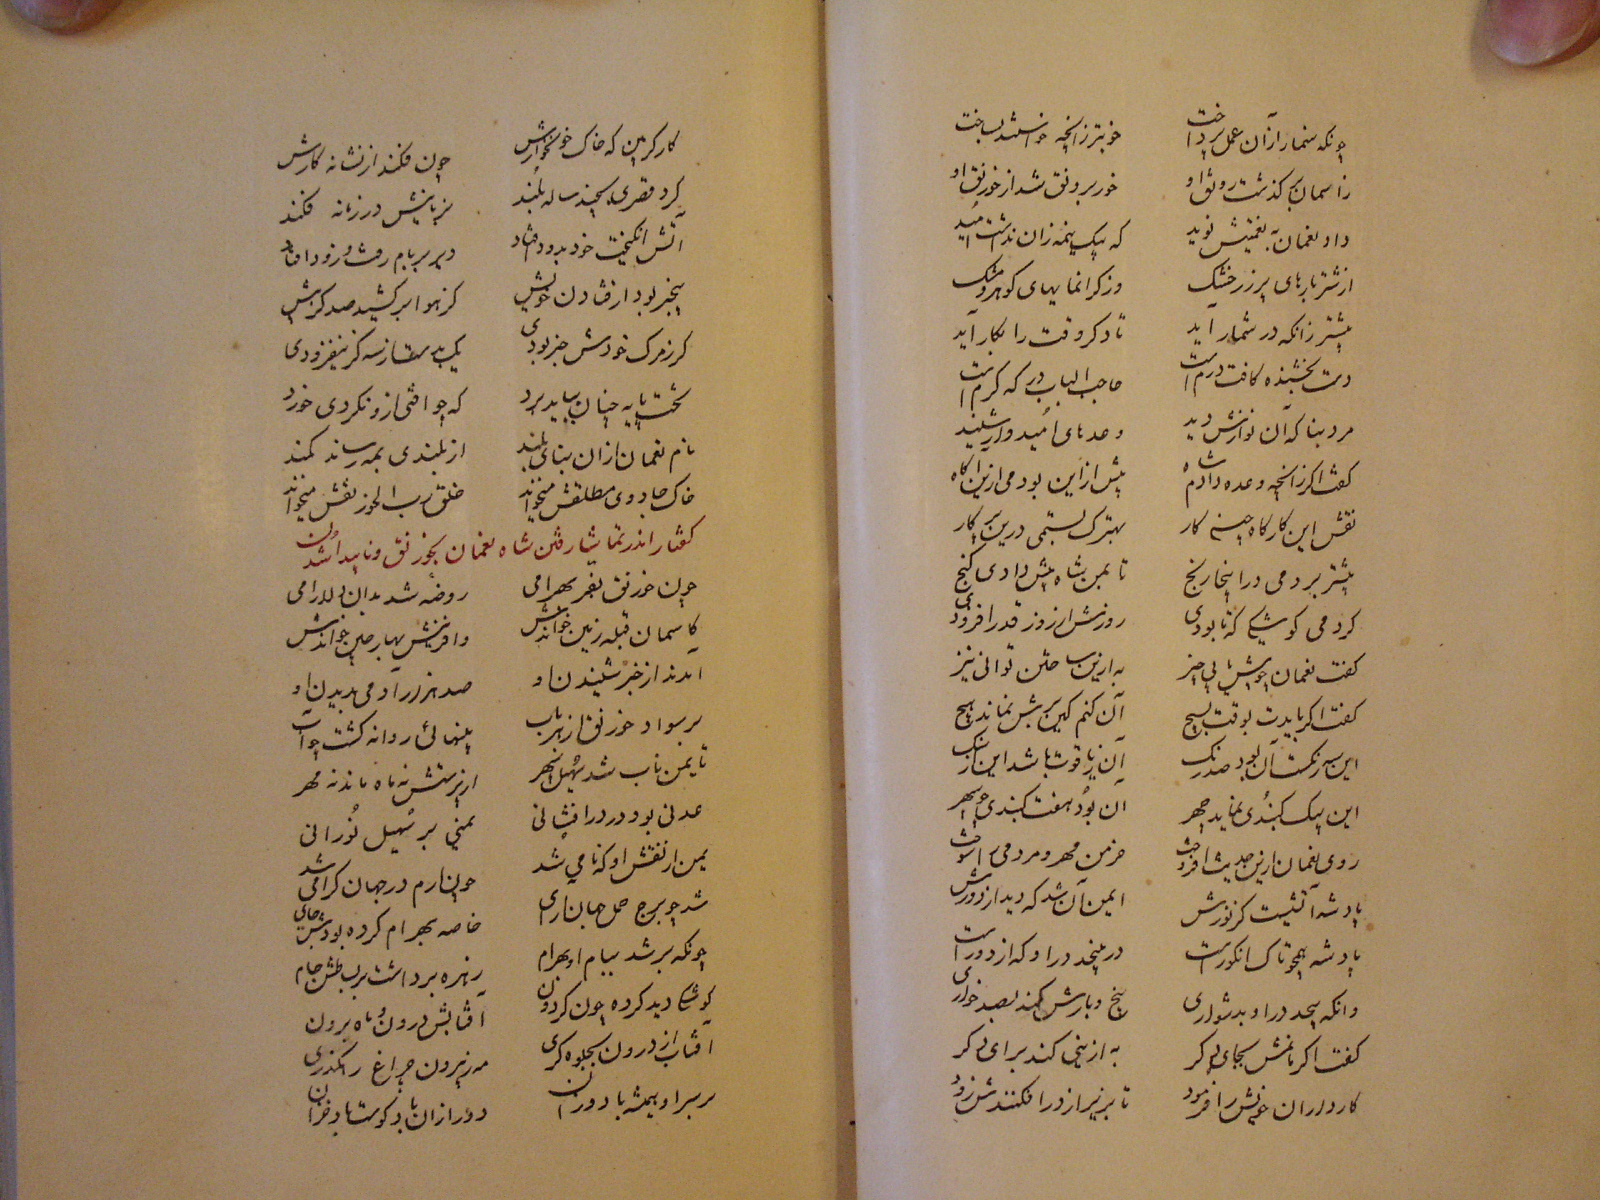 چونکه سنمار ازان عمل پرداخت خوبتر زانچه خواستند بساخت
ز آسمان بر گذشت رونق او خور برونق شد از خورنق او
داد نعمان به نعمتیش نوید که بیک نیمه زان نداشت امید
از شتر بارهای پر زر خشک وز گرانمایهای گوهر و مشک
بیشتر زانکه در شمار آید تا دگر وقت را بکار آید
دست بخشنده کافت درم است حاجب الباب در که کرم است
مرد بنا که آن نوازش دید وعدهای امیدوار شنید
گفت اگر زانچه وعده دادم شاه پیش ازین بودمی ازین آگاه
نقش این کارگاه چینی کار بهترک بستمی درین پرگار
بیشتر بردمی در اینجا رنج تا بمن شاه بیش دادی گنج
کردمی کوشکی که تا بودی روزش از روز قدر افزودی
گفت نعمان چو بیش یابی چیز به ازین ساختن توانی نیز
گفت اگر بایدت بوقت بسیج آن کنم کین برش نماند هیچ
این سه رنگست آن بود صد رنگ آن ز یاقوت باشد این از سنگ
این بیک گنبدی نماید چهر آن بود هفت گنبدی چو سپهر
روی نعمان ازین حدیث افروخت خرمن مهر و مردمی را سوخت
پادشه آتشیست کز نورش ایمن آن شد که دید از دورش
پادشه همچو تاک انگورست در نپیچد در او که ازو دورست
وانکه پیچد در او بدشواری بیخ و بارش کند بصد خواری
گفت اگر مانمش بجای دگر به ازینی کند برای دگر
کارداران خویش را فرمود تا بزیر از در افکنندش زود
کارگر بین که خاک خونخوارش چون فکند از نشانه کارش
کرد قصری بچند ساله بلند بزمانیش در زمانه فکند
آتش انگیخت خود بدود فتاد دیر بر بام رفت و زود افتاد
بیخبر بود از فتادن خویش کز هوا بر کشید صد گز بیش
گر ز مرگ خودش خبر بودی یک بدست از سه گز نیفزودی
تخت پایه چنان بباید برد که چو افتی ازو نگردی خورد
نام نعمان ازان بنای بلند از بلندی بمه رساند کمند
خاک جادوی مطلقش میخواند خلق رب الخورنقش میخواند
گفتار اندر تماشا رفتن شاه نعمان بخورنق و ناپیدا شدن
چون خورنق بفر بهرامی روضه شد بدان دلارامی
کاسمان قبله زمین خواندش وافرینش بهار چین خواندش
آمدند از خبر شنیدن او صد هزار آدمی بدیدن او
بر سواد خورنق از هر باب بینهائی روانه گشت چو آب
تا یمن تاب شد سهیل سپهر از پرستش نه ماه ماند نه مهر
عدنی بود در در افشانی یمنی پر سهیل نورانی
یمن از نقش او که نامی شد چون ارم در جهان گرامی شد
شد چو برج حمل جهان آرای خاصه بهرام کرده بودش جای
چونکه بر شد ببام او بهرام زهره برداشت بر بساطش جام
کوشکی دید کرده چون گردون آفتابش درون و ماه برون
آفتاب از درون بجلوه گری مه ز بیرون چراغ رهگذری
بر سر او همیشه باد وزان دور ازان باد کوست باد خزان